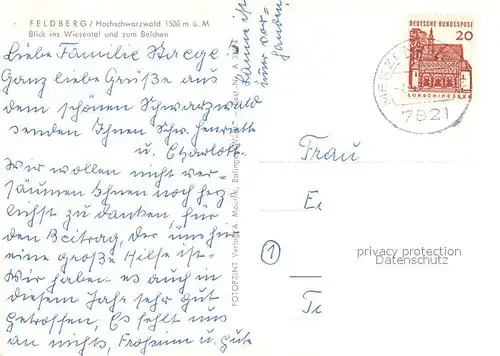 FELDBERG / Hochschwarzwald 1500 m ü. M.
Blick ins Wiesental und zum Belchen
Liebe Familie
Ganz liebe Grüße aus
dem schönen Schwarzwald
senden Ihnen Schw. Henriette
u. Charlott.
Wir wollen nicht ver-
säumen Ihnen noch herz
lichst zu danken, für
den Beitrag, der uns
eine große Hilfe ist.
Wir haben es auch in
diesem Jahr sehr gut
getroffen, Es fehlt uns
an nichts, Frohsinn u. gute
Laune ist
immer vor-
handen!
FOTOPRINT Verlag A. Maurer,
DEUTSCHE BUNDESPOST
20
LORSCH/HESSEN
7821
Frau
1
privacy protection
Datenschutz